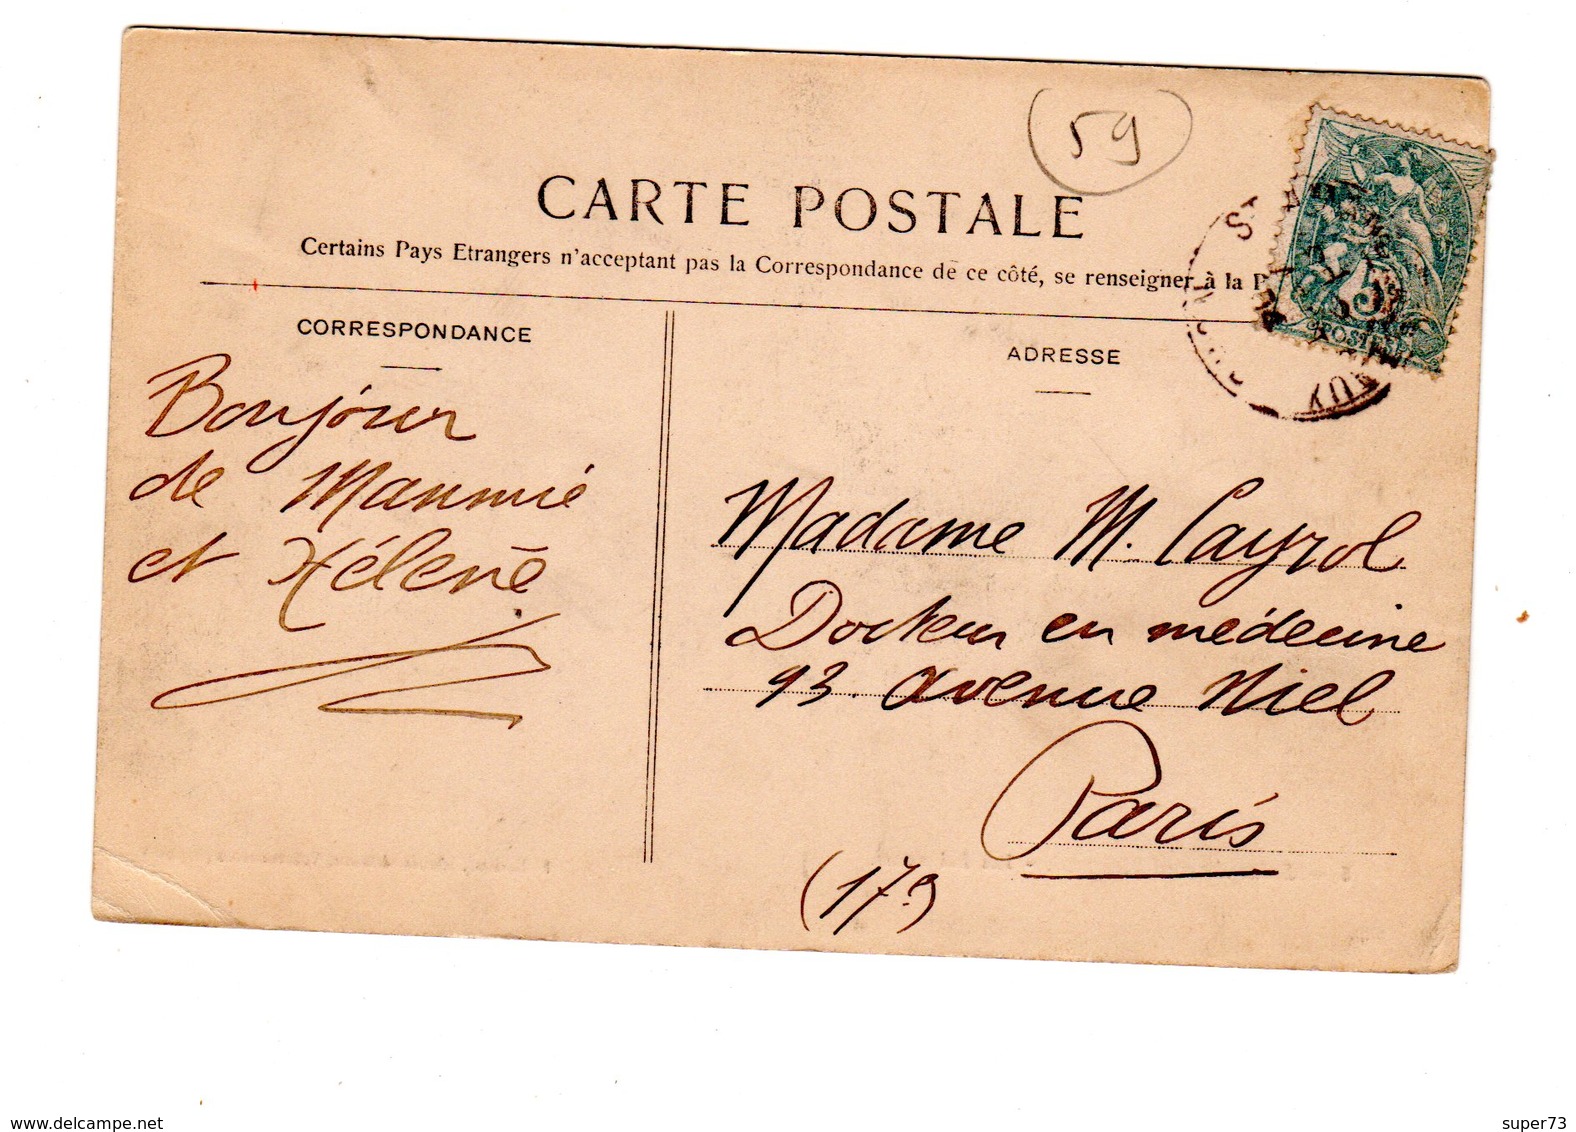 59
CARTE POSTALE
Certains Pays Etrangers n'acceptant pas la Correspondance de ce côté, se renseigner à la
CORRESPONDANCE
ADRESSE
Bonjour
de Mammié
et Hélène
Madame M. Cayrol
Docteur en médecine
93. Avenue Niel
Paris
(17e)
5
POSTES
www.delcampe.net
super73